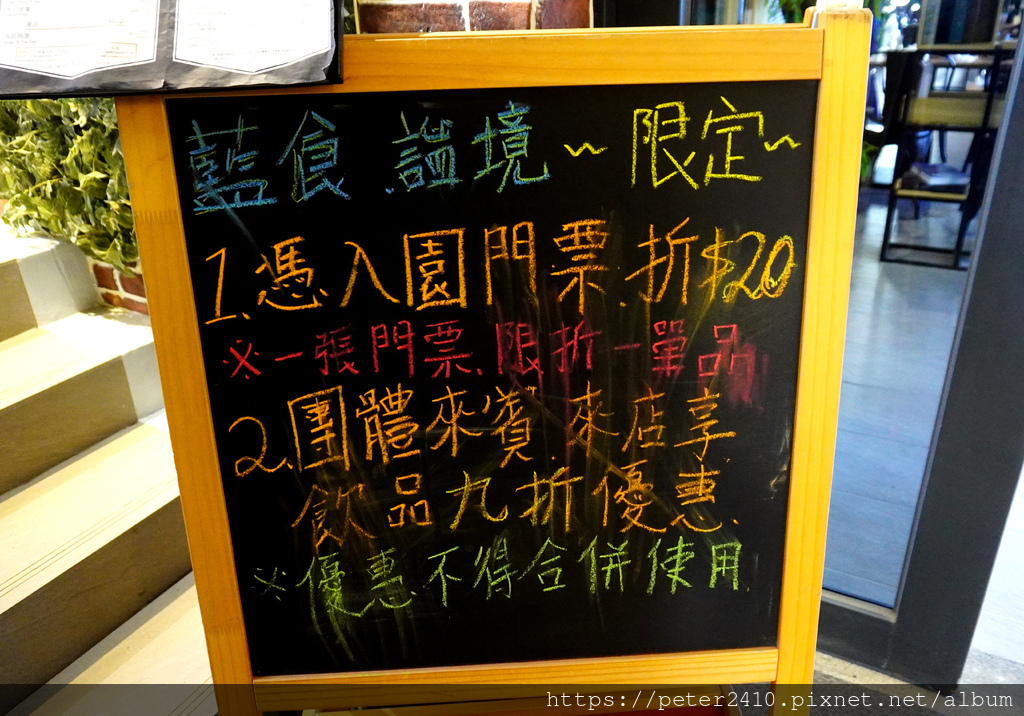 藍食 謐境～限定～
1.憑入園門票.折$20
※一張門票.限折一單品
2.團體來賓.來店享
飲品九折優惠.
※優惠不得合併使用.
https://peter2410.pixnet.net/album